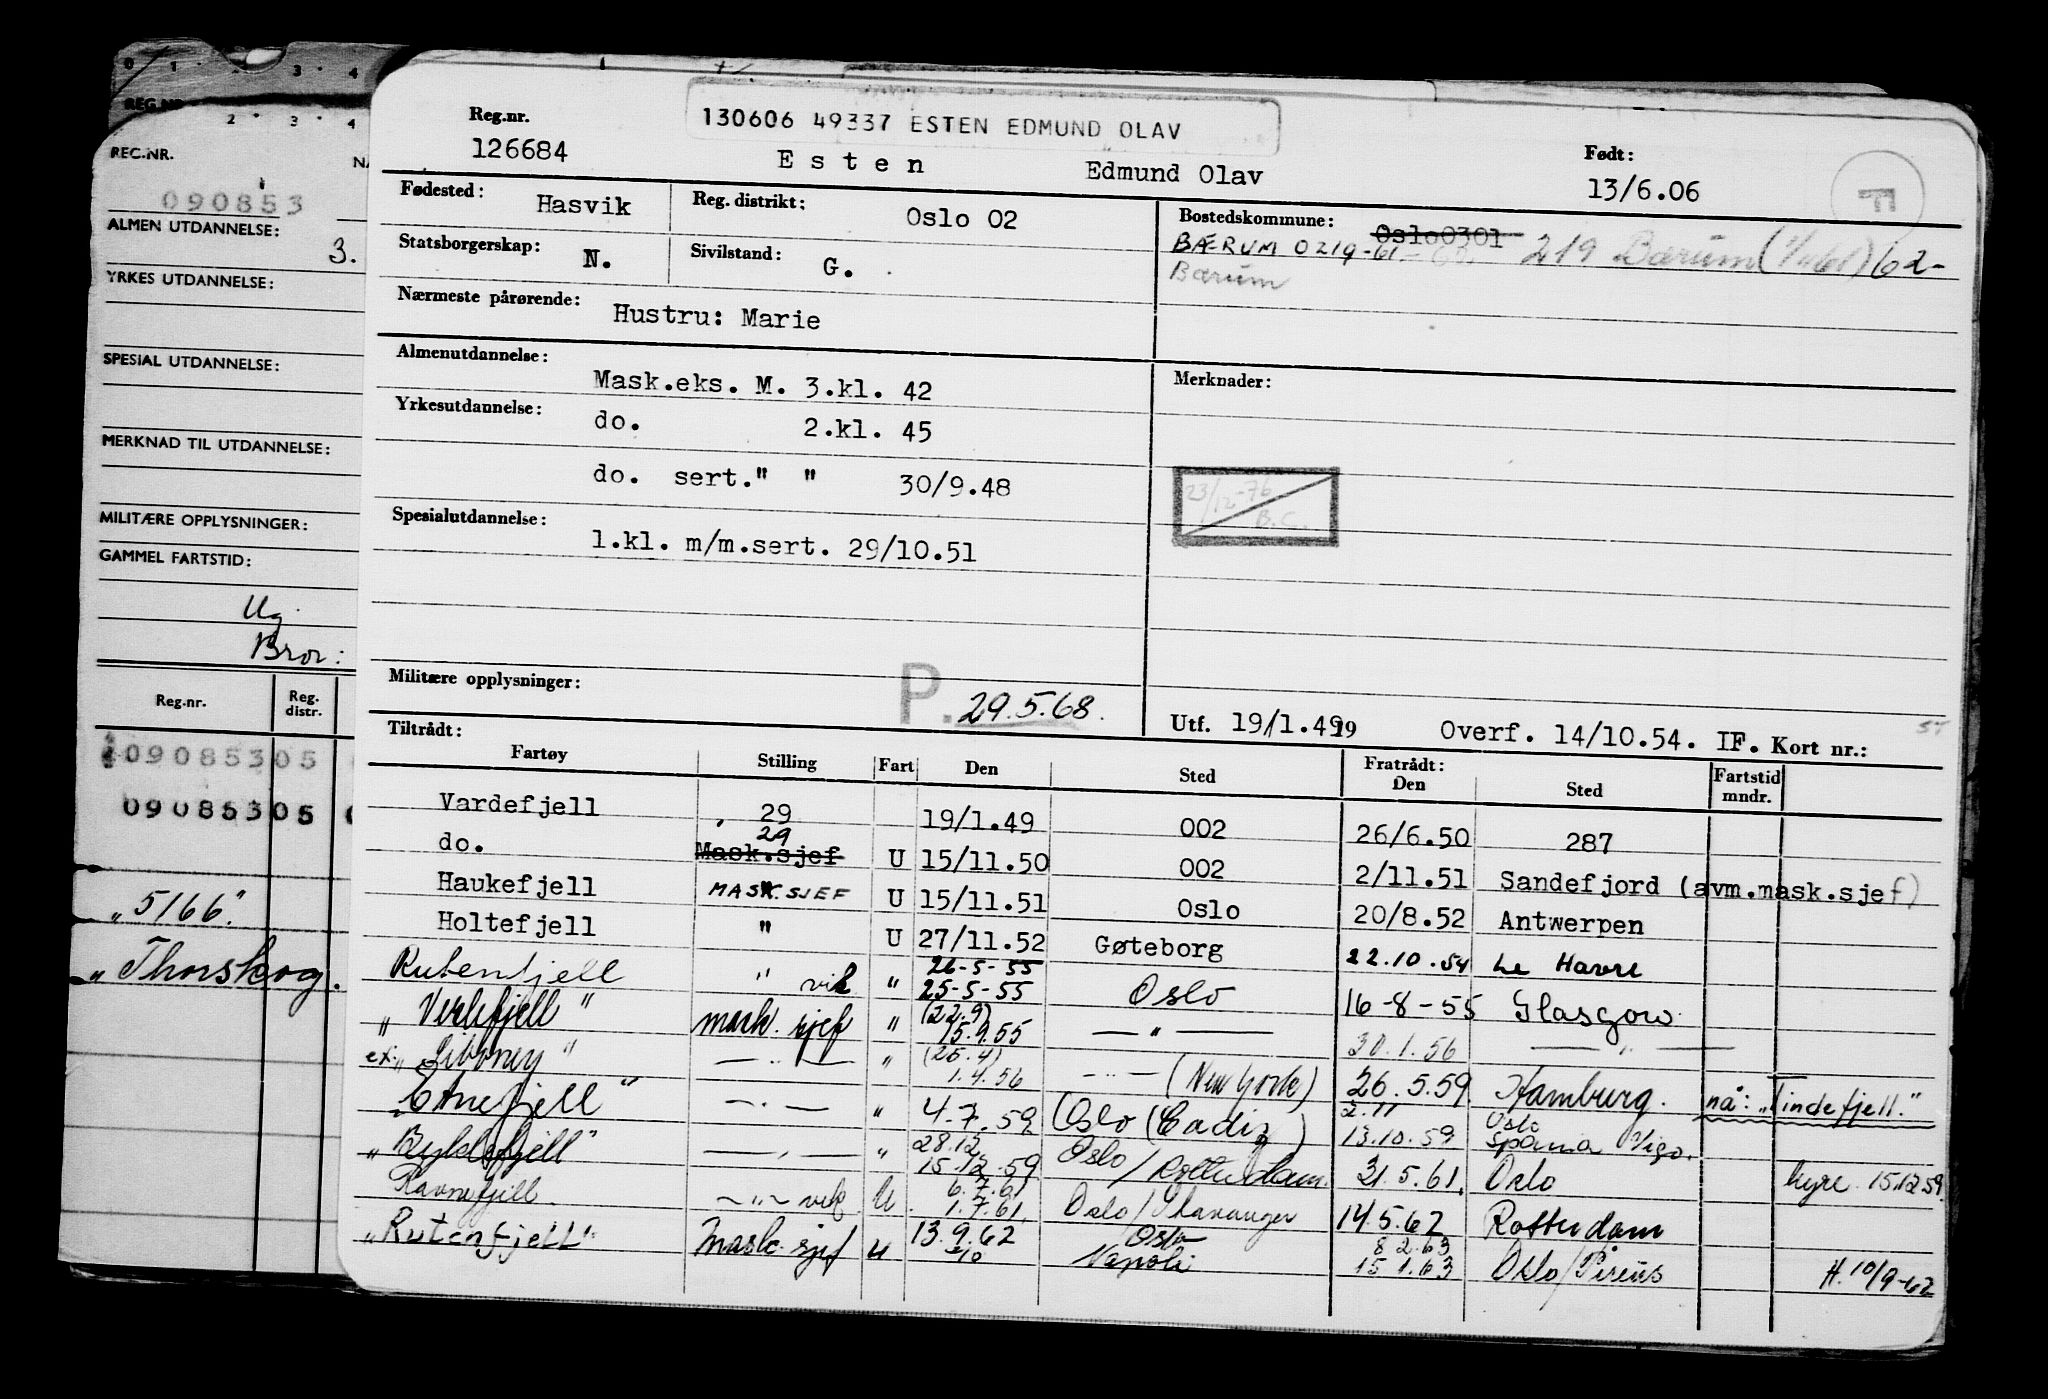 0 1 2 3 4
REG.NR.
2 3 4
REG.NR.
090853
ALMEN UTDANNELSE:
3.
YRKES UTDANNELSE:
SPESIAL UTDANNELSE:
MERKNAD TIL UTDANNELSE:
MILITÆRE OPPLYSNINGER:
GAMMEL FARTSTID:
Ug.
Bror:
Reg.nr. Reg. distr.
09085305
09085305
"5166".
"Thorskog.
130606 49337 ESTEN EDMUND OLAV
Reg.nr. 126684 Esten Edmund Olav Født: 13/6.06 F
Fødested: Hasvik Reg. distrikt: Oslo 02 Bostedskommune: Oslo0301 219 Bærum (1/1 61) 62-
Statsborgerskap: N. Sivilstand: G. BÆRUM 0219-61
Bærum
Nærmeste pårørende: Hustru: Marie
Almenutdannelse: Mask.eks. M. 3.kl. 42 Merknader:
Yrkesutdannelse: do. 2.kl. 45
do. sert." " 30/9.48
23/12-76 B.C.
Spesialutdannelse: 1.kl. m/m.sert. 29/10.51
Militære opplysninger: P. 29.5.68. Utf. 19/1.49 19 Overf. 14/10.54. IF. Kort nr.:
Tiltrådt: Fratrådt:
Fartøy Stilling Fart Den Sted Den Sted Fartstid mndr.
Vardefjell 29 19/1.49 002 26/6.50 287
do. 29 Mask.sjef U 15/11.50 002 2/11.51 Sandefjord (avm.mask.sjef)
Haukefjell MASK.SJEF U 15/11.51 Oslo 20/8.52 Antwerpen
Holtefjell " U 27/11.52 Gøteborg 22.10.54 Le Havre
Rutenfjell " vik " 26-5-55 25-5-55 Oslo 16-8-55 Glasgow
"Verlefjell" mask. sjef " (22.9) 15.9.55 — " — 30.1.56 — " —
ex: — " — " (25.4) 1.4.56 — " — (New York) 26.5.59 Hamburg. nå: "Tindefjell."
"Etnefjell" — " — " 4.7.59 Oslo (Cadiz) 2.11 13.10.59 Oslo Spania Vigo.
"Byklefjell" — " — " 28.12 15.12.59 Oslo / Rotterdam. 31.5.61. Oslo hyre 15.12.59
Ravnefjell — " — vik U. 6.7.61 1.7.61. Oslo / Stavanger 14.5.62 Rotterdam
"Rutenfjell" Mask. sjef U 13.9.62 /10 Oslo Napoli 8.2.63 15.1.63 Oslo/Pireus H. 10/9-62